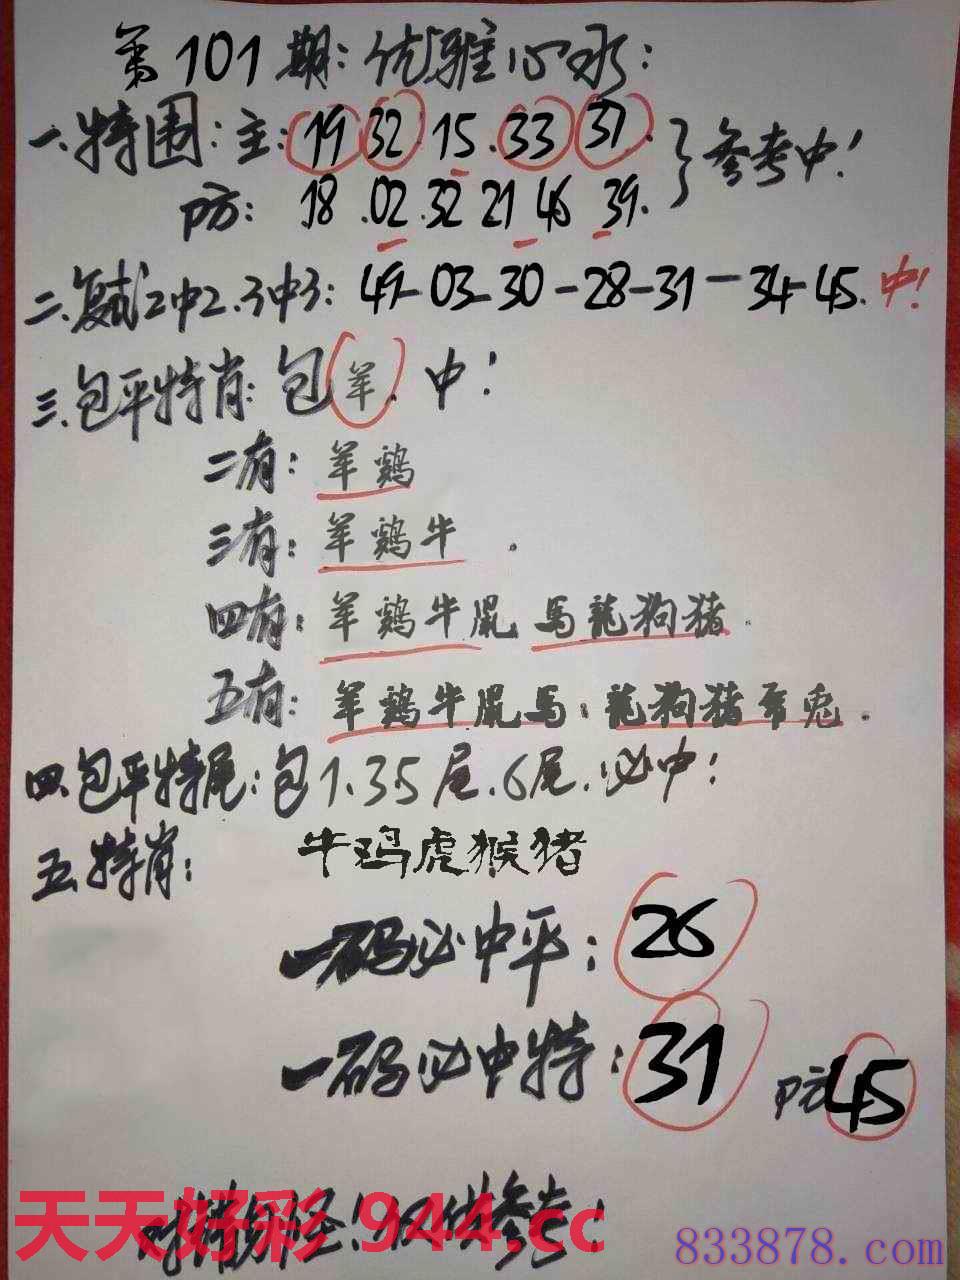 第101期：优雅心水：
一.特围：主：19 32 15.33 37. 参考中！
防：18.02.32 21 46 39.
二.复试2中2.3中3：49-03-30-28-31-34-45.中！
三.包平特肖：包羊.中！
二有：羊鸡
三有：羊鸡牛.
四有：羊鸡牛鼠 马龍狗猪.
五有：羊鸡牛鼠马：龍狗猪 兔.
四.包平特尾：包1.3.5尾.6尾.必中！
五.特肖： 牛鸡虎猴猪
一码必中平：26
一码必中特：31 防45
天天好彩 944.cc
仅供参考！
833878.com